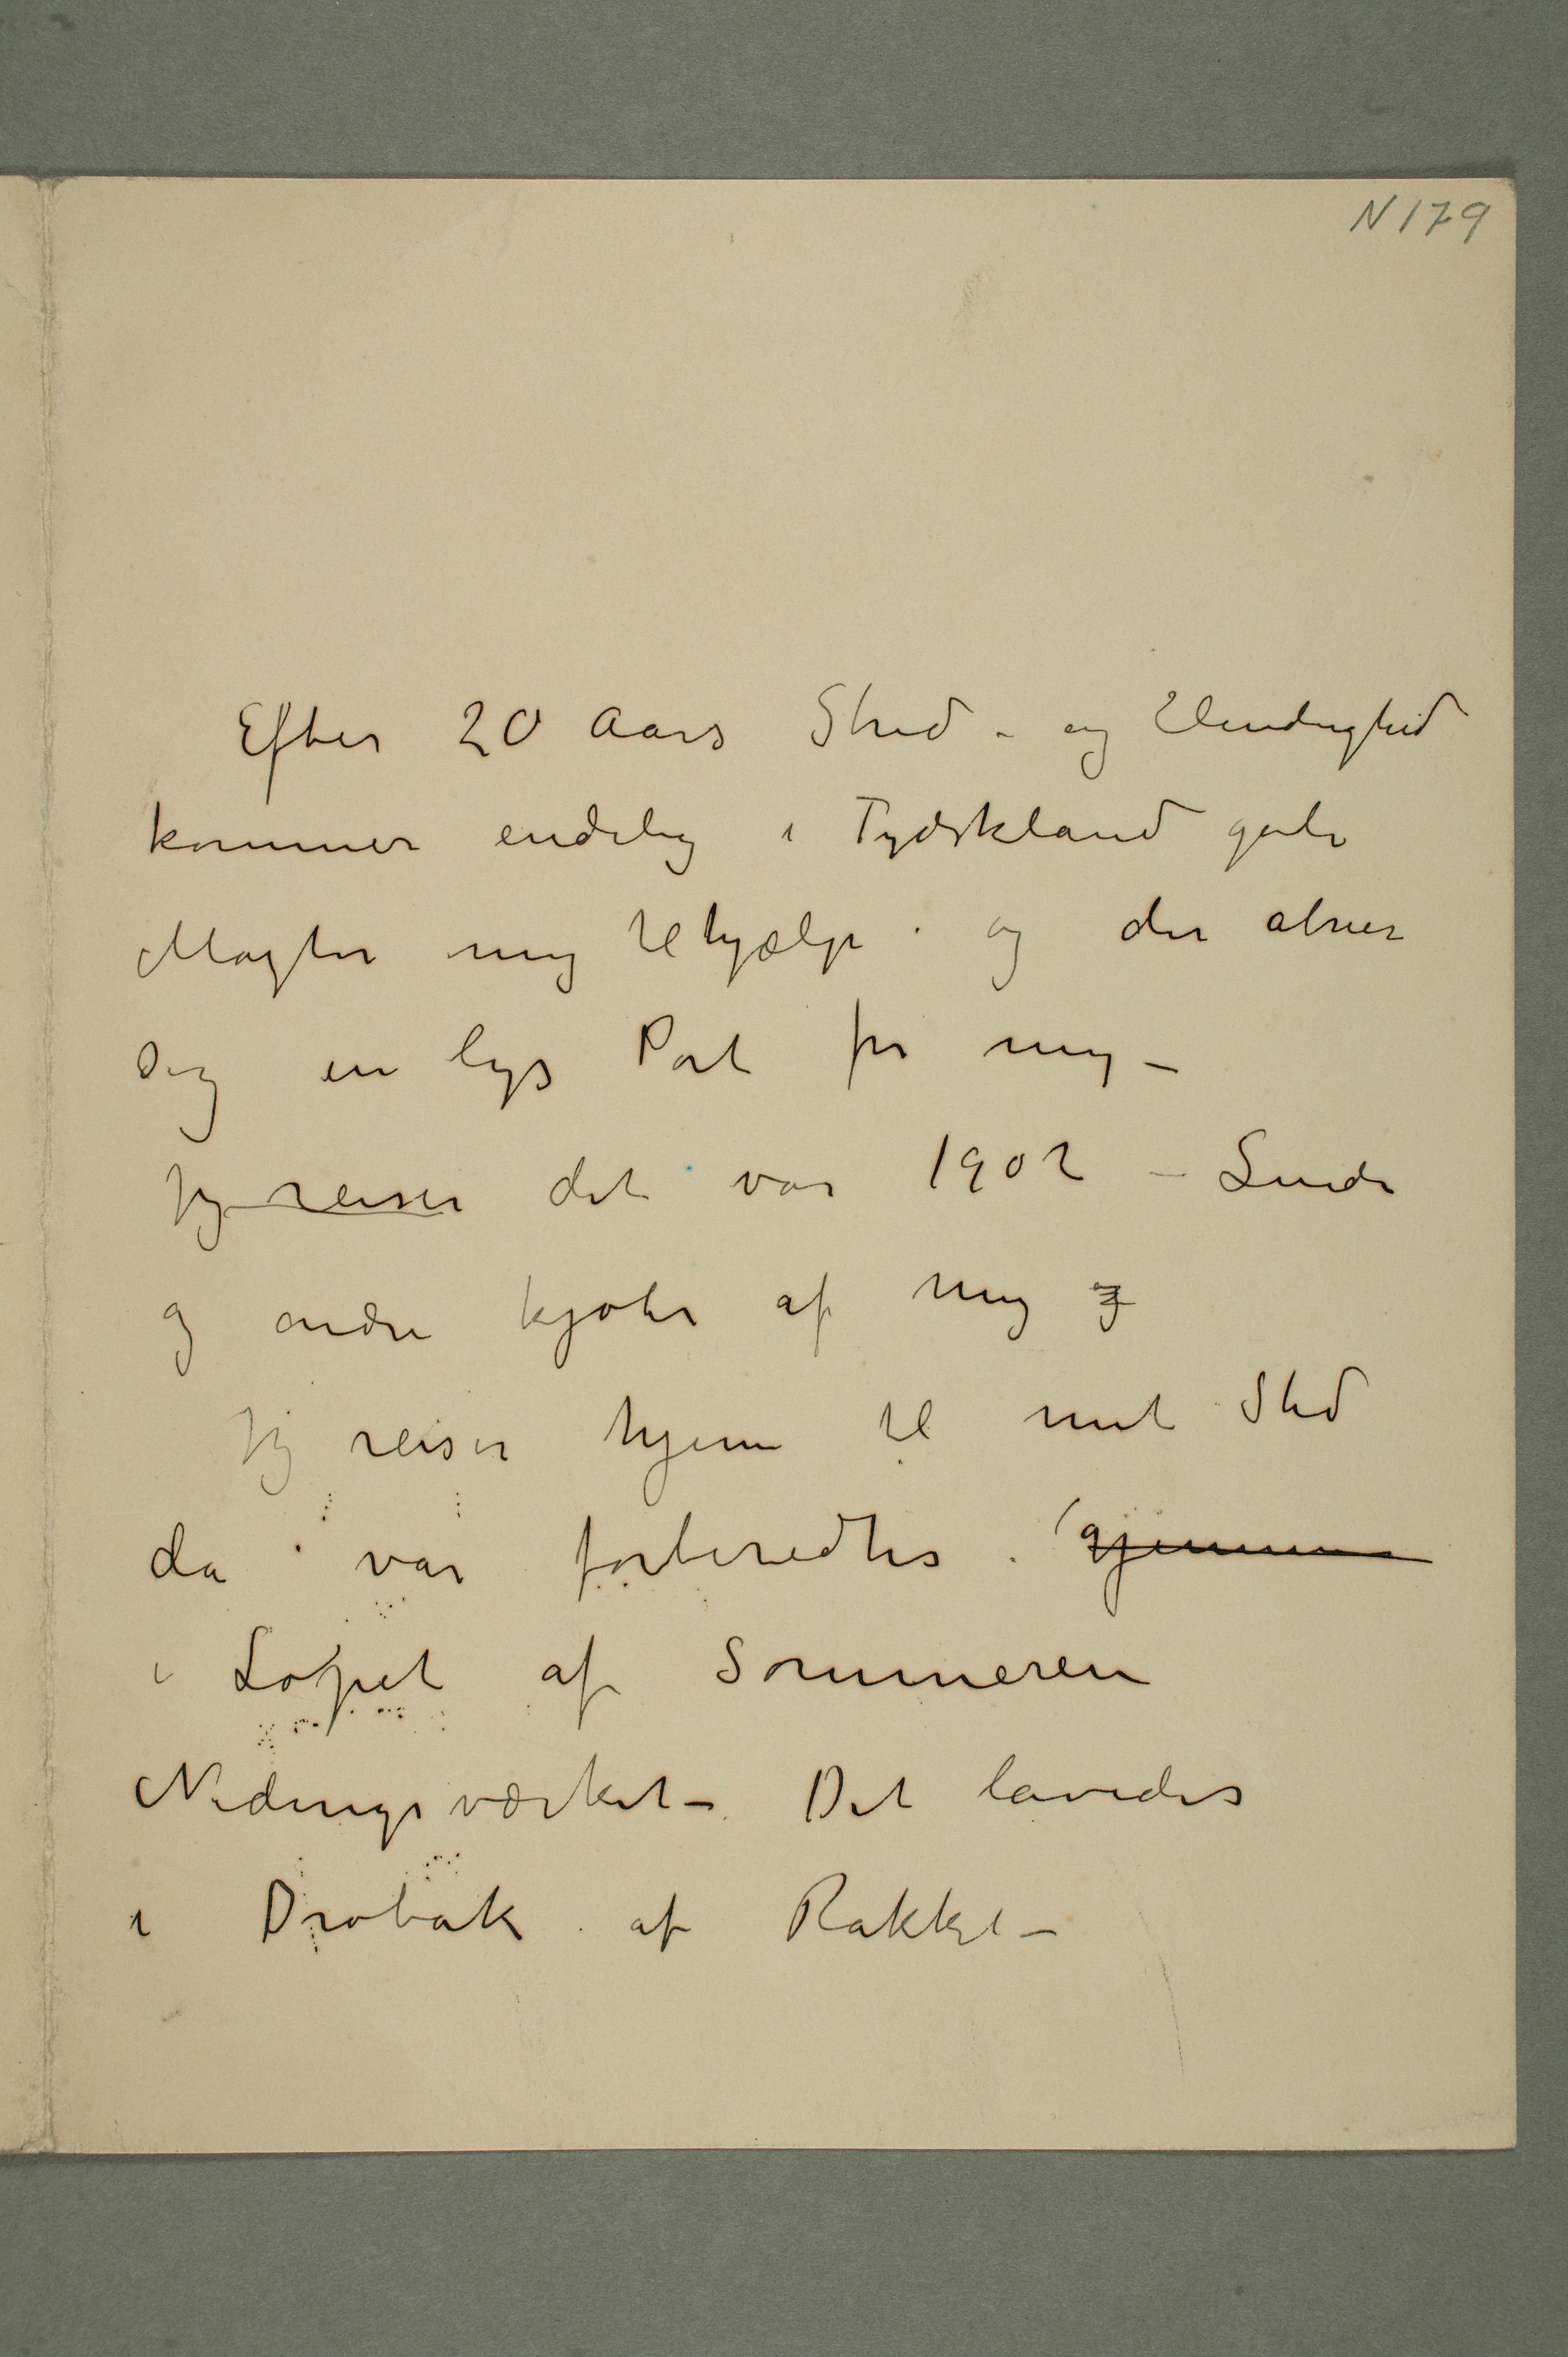 N 179
Efter 20 Aars Strid – og Elendighed
kommer endelig i Tydskland gode
Magter mig tilhjælp. og der abner
sig en lys Port for mig –
Jeg reiser det var 1902 – Linde
og andre kjøbte af mig og
Jeg reiser hjem til mit Sted
da var forberedtes. gjennem
i Løpet af Sommeren
Nidingsværket – Det lavedes
i Drøbak af Rakket –